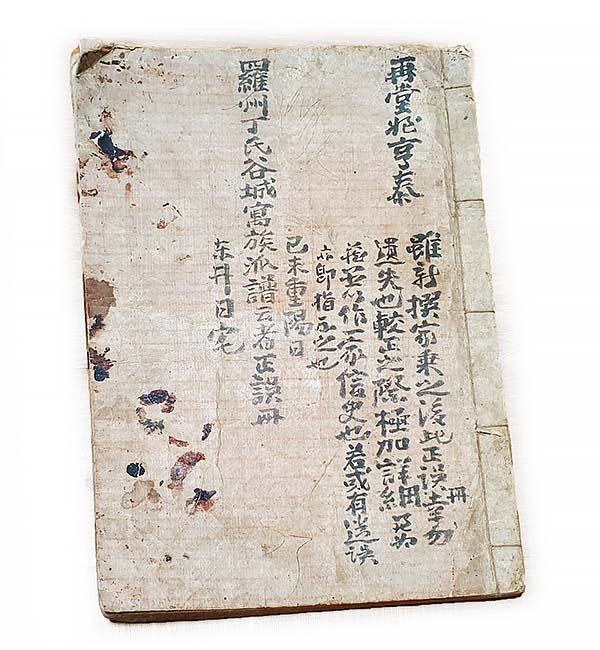 再堂姪亨泰
雖新撰家乘之後此正誤冊幸勿
遺失也較正之際極加詳細是爲
並以作一家信史也若或有遺誤
亦即指示之也
己未重陽日
羅州丁氏谷城寓族派譜云者正誤冊
東井日宅